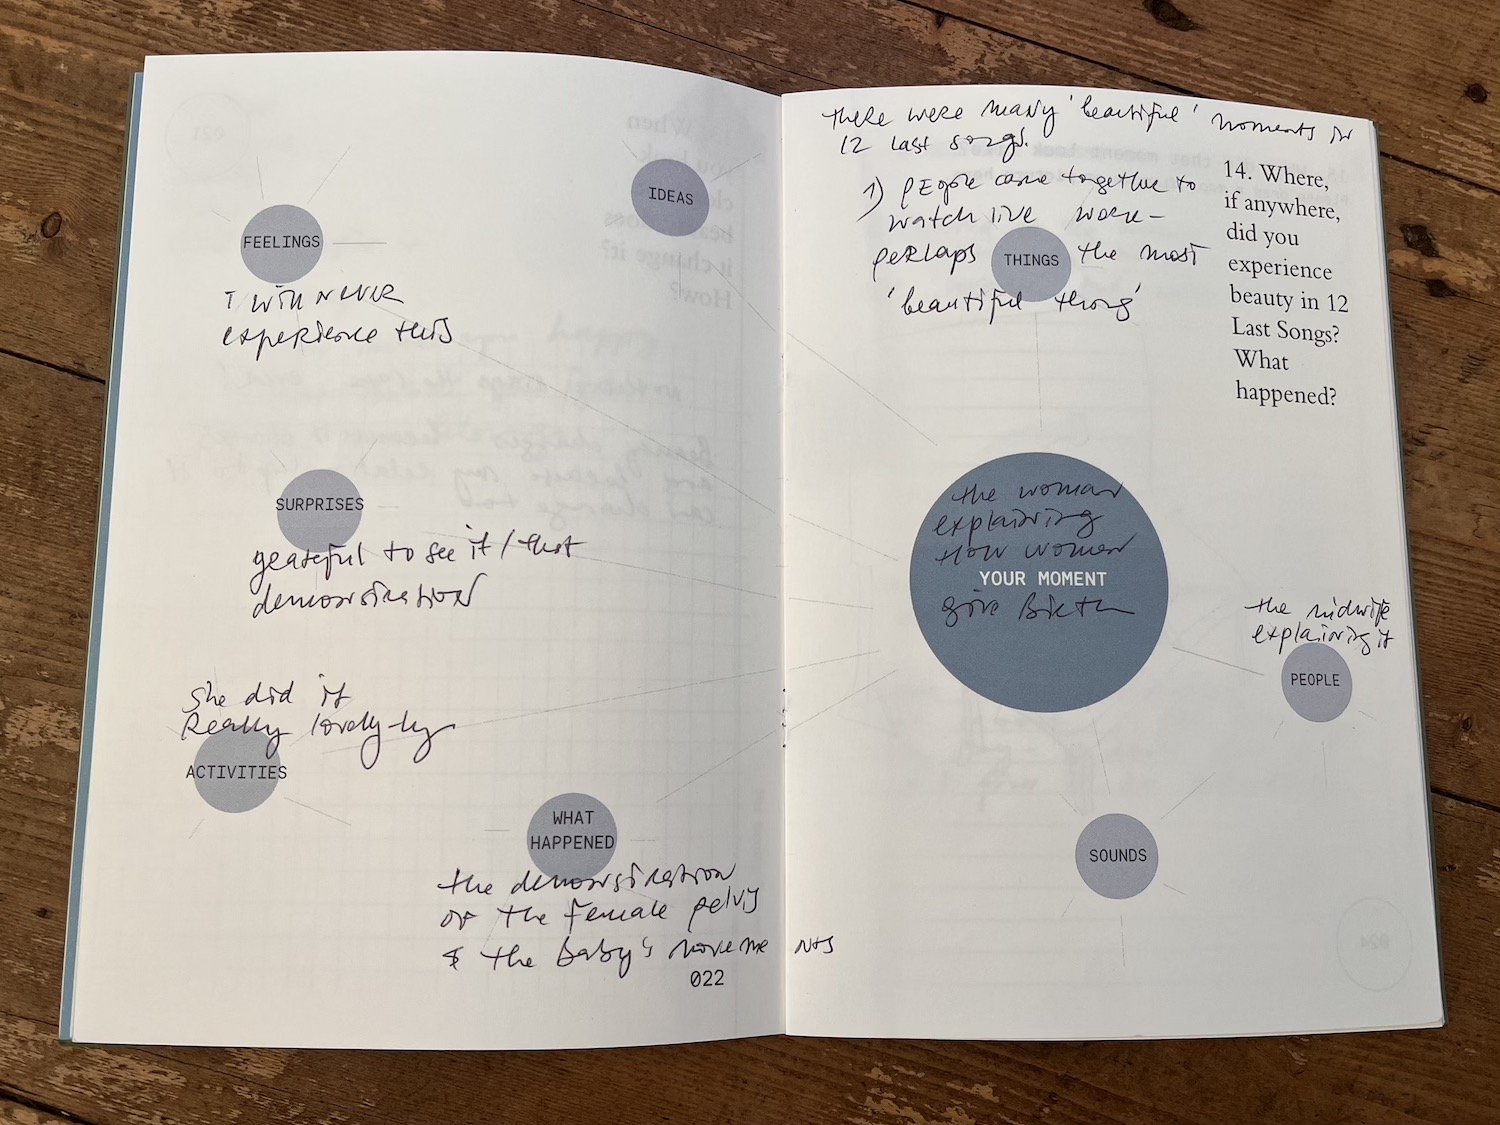 IDEAS
FEELINGS
I will never
experience this
SURPRISES
grateful to see it / that
demonstration
She did it
Really lovely-ly
ACTIVITIES
WHAT
HAPPENED
the demonstration
of the female pelvis
& the baby's moveme nts
022
there were many 'beautiful' moments in
12 last songs.
1) people came together to
watch live work -
perhaps the most
'beautiful thing'
THINGS
14. Where,
if anywhere,
did you
experience
beauty in 12
Last Songs?
What
happened?
the woman
explaining
how women
YOUR MOMENT
give Birth
the midwife
explaining it
PEOPLE
SOUNDS